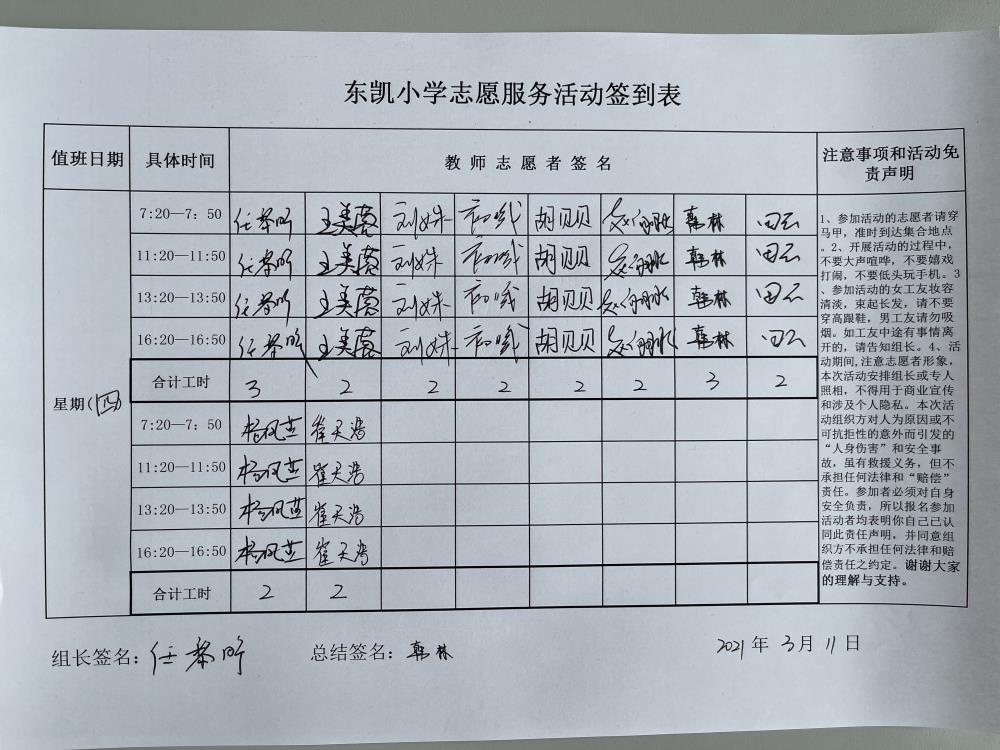 东凯小学志愿服务活动签到表
值班日期 具体时间 教师志愿者签名 注意事项和活动免责声明
7:20—7:50 任黎昕 王美蓉 刘姝 胡贝贝 韩林 田云
11:20—11:50 任黎昕 王美蓉 刘姝 胡贝贝 韩林 田云
13:20—13:50 任黎昕 王美蓉 刘姝 胡贝贝 韩林 田云
16:20—16:50 任黎昕 王美蓉 刘姝 胡贝贝 韩林 田云
合计工时 3 2 2 2 2 2 3 2
星期(四)
7:20—7:50 崔天浩
11:20—11:50 崔天浩
13:20—13:50 崔天浩
16:20—16:50 崔天浩
合计工时 2 2
1、参加活动的志愿者请穿
马甲，准时到达集合地点
。2、开展活动的过程中，
不要大声喧哗，不要嬉戏
打闹，不要低头玩手机。3
、参加活动的女工友妆容
清淡，束起长发，请不要
穿高跟鞋，男工友请勿吸
烟。如工友中途有事情离
开的，请告知组长。4、活
动期间,注意志愿者形象，
本次活动安排组长或专人
照相，不得用于商业宣传
和涉及个人隐私。本次活
动组织方对人为原因或不
可抗拒性的意外而引发的
“人身伤害”和安全事
故，虽有救援义务，但不
承担任何法律和“赔偿”
责任。参加者必须对自身
安全负责，所以报名参加
活动者均表明你自己已认
同此责任声明，并同意组
织方不承担任何法律和赔
偿责任之约定。谢谢大家
的理解与支持。
组长签名：任黎昕 总结签名：韩林 2021年3月11日